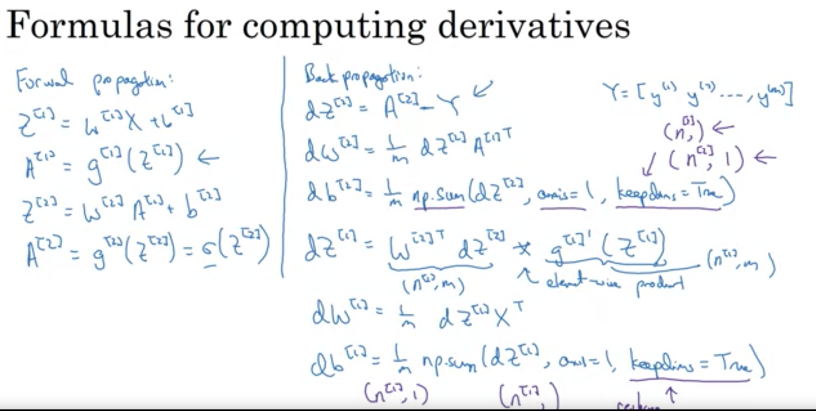 Formulas for computing derivatives
Forward propagation:
Z^[1] = W^[1]X + b^[1]
A^[1] = g^[1](Z^[1]) ←
Z^[2] = W^[2] A^[1] + b^[2]
A^[2] = g^[2](Z^[2]) = σ(Z^[2])
Back propagation:
dZ^[2] = A^[2] - Y ↙
dW^[2] = 1/m dZ^[2] A^[1]T
db^[2] = 1/m np.sum(dZ^[2], axis=1, keepdims=True)
dZ^[1] = W^[2]T dZ^[2] * g^[1]'(Z^[1])
(n^[1], m) ↖ element-wise product (n^[1], m)
dW^[1] = 1/m dZ^[1] X^T
db^[1] = 1/m np.sum(dZ^[1], axis=1, keepdims=True)
(n^[1], 1) (n^[1],) ↑
Y = [y^(1) y^(2) ..., y^(m)]
(n^[2],) ←
↙ (n^[2], 1) ←